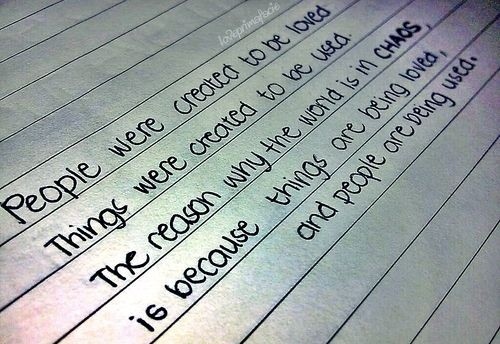 lo9eprimafacie
People were created to be loved
Things were created to be used.
The reason why the world is in CHAOS,
is because things are being loved,
and people are being used.